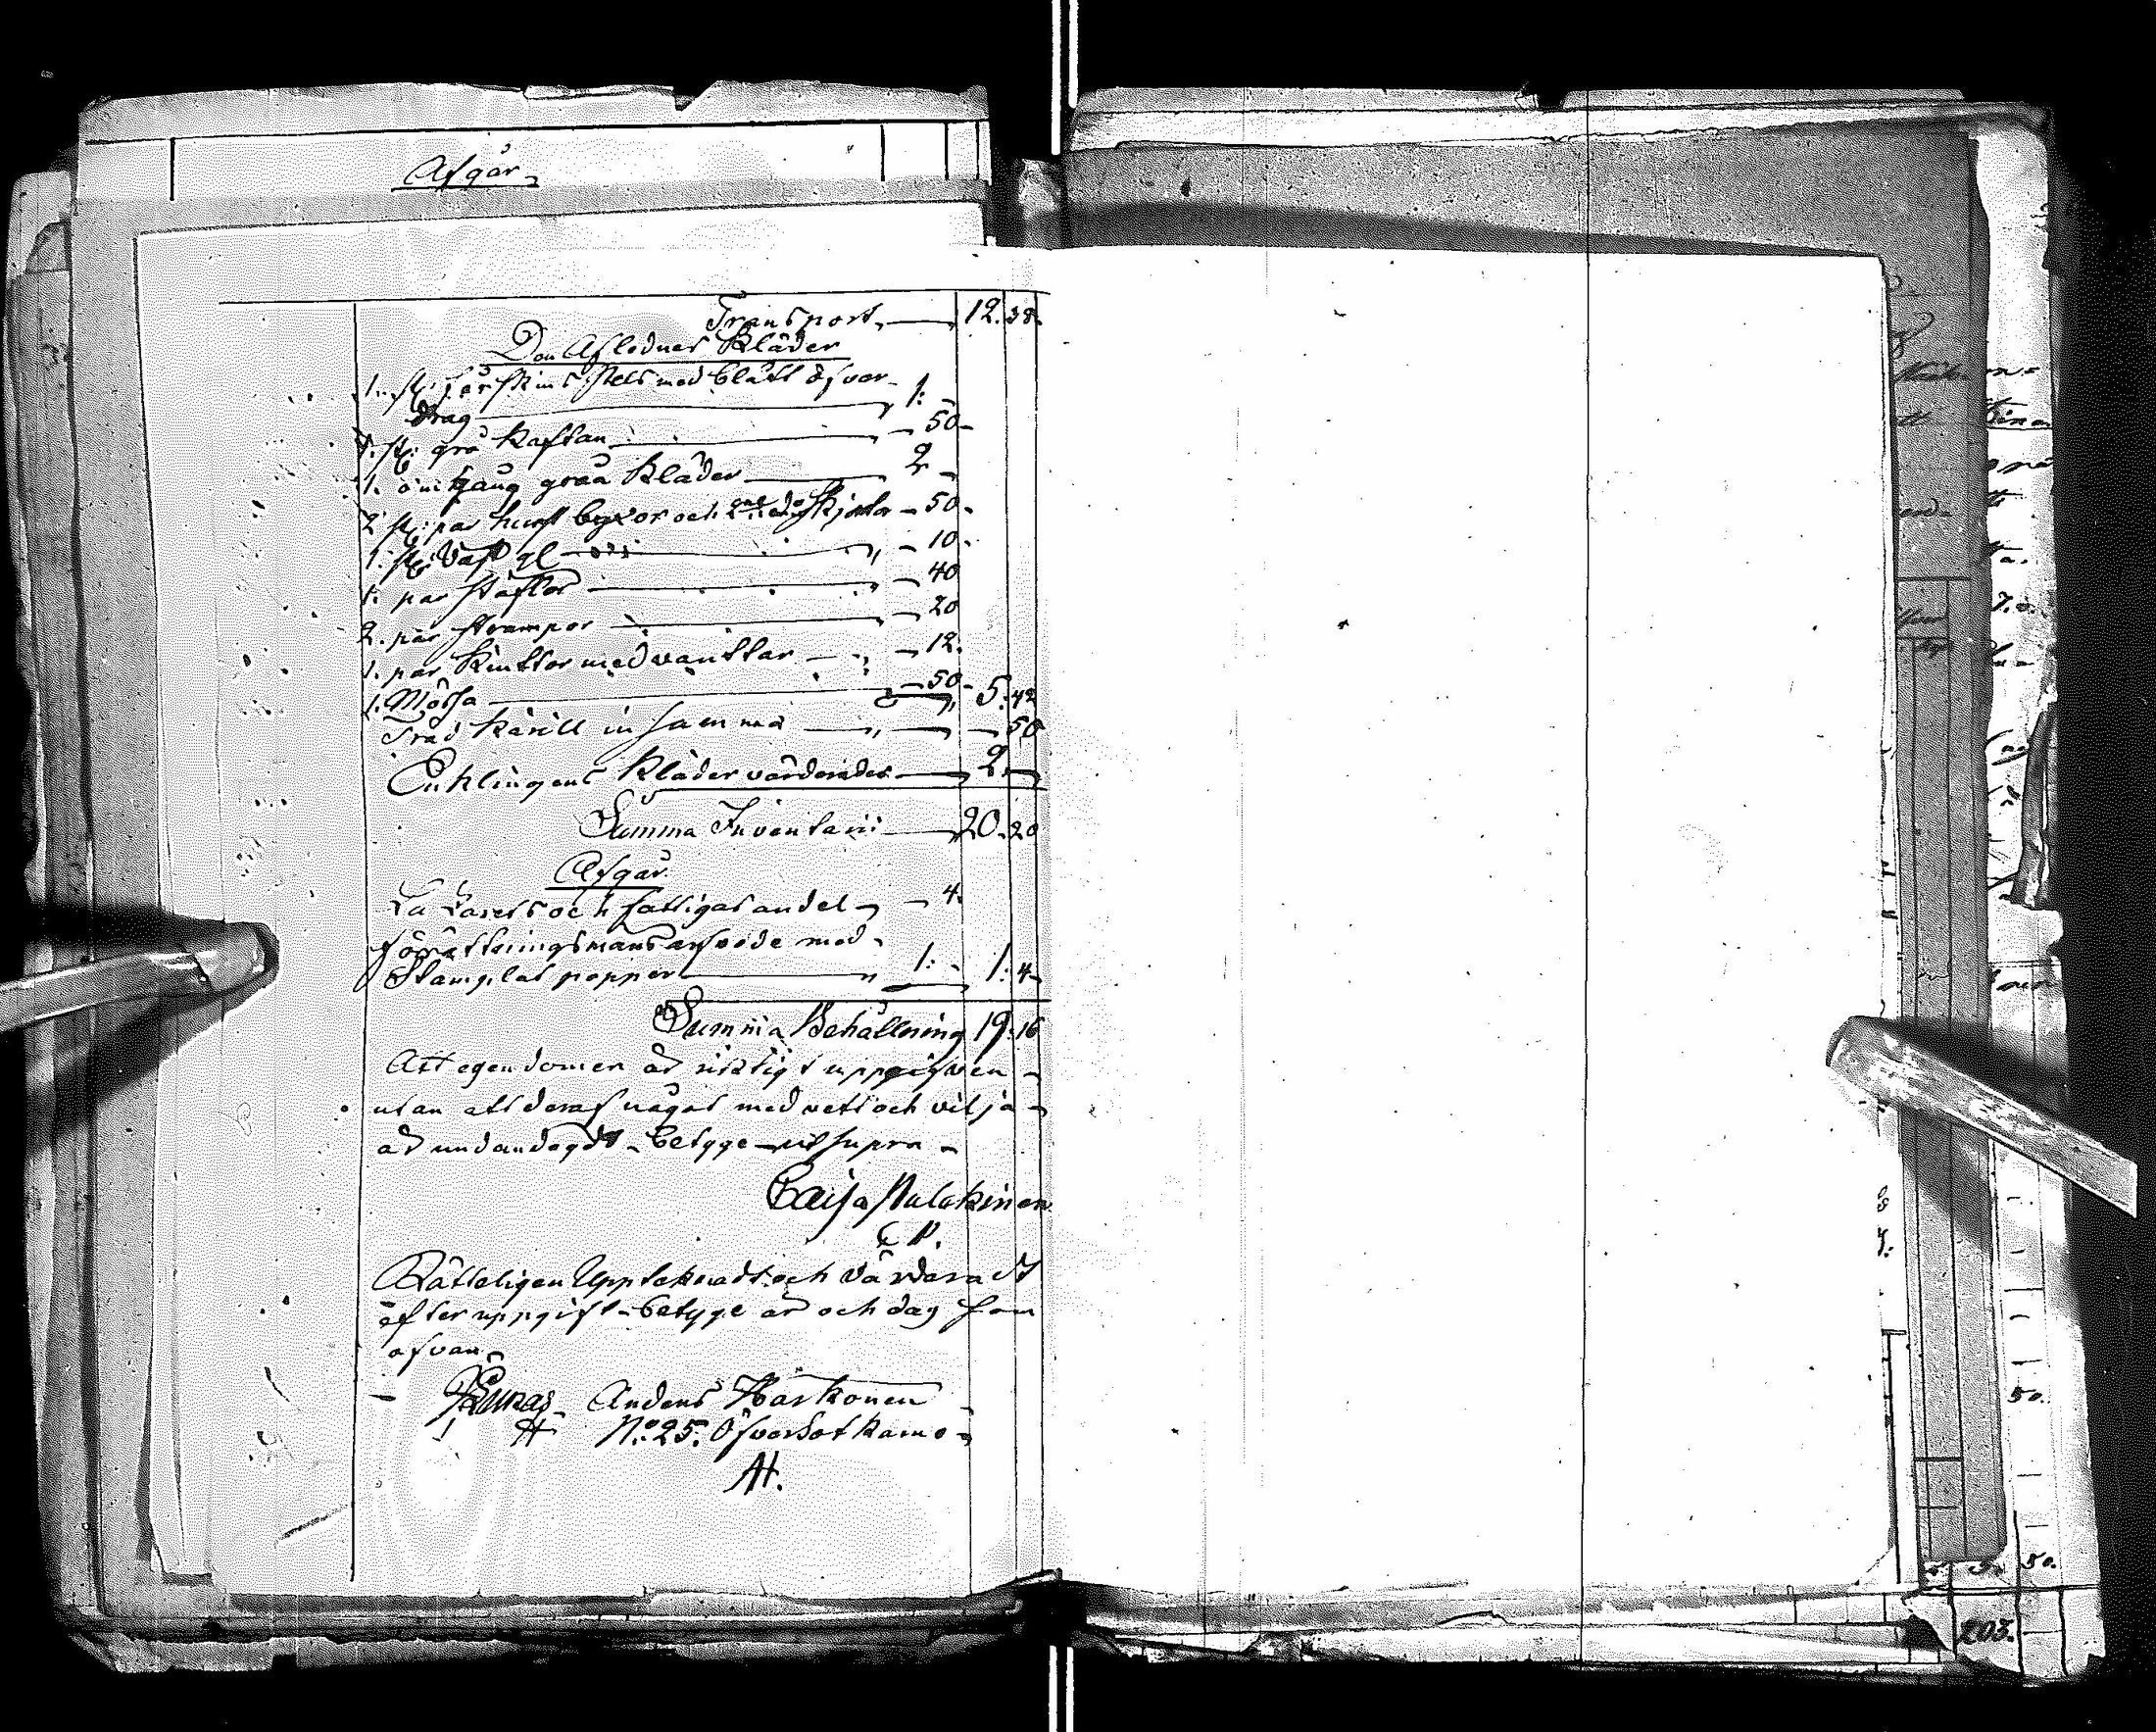 Afgår
Transport, 12. 38.
Den Aflednes Kläder
1. st: fårskins Pels med blått öfver-
drag 1: -
1. st: grå Kaftan - 50-
1. omgång gråa Kläder 2 -
2 st: par hurst byxor och 2ne do Skjorta - 50-
1. st: Väst gl - 10-
1. par stöflor - 40
2. par strumpor - 20
1. par Kinttor med vanttar - 12.
1. Mössa - 50- 5. 42
Träd Kärill in summa - 50
Enklingens Kläder värderades 2. -
Summa Inventarii 20. 20
Afgår
La Zarets och fattigas andel - 4.
förrättningsmans arfvode med
Stämplat papper 1: - 1. 4-
Summa Behållning 19. 16
Att egendomen är riktigt uppgifven -
utan att deraf något med vett och vilja -
är undandogdt - betyge - ut supra -
Caisa Pulakinen
C P.
Rätteligen Upptaknadt och värderadt
efter uppgift - betyge år och dag som
ofvan -
Anders Harkonen
N:o 25. Öfversotkamo -
AH.
50.
50.
203.